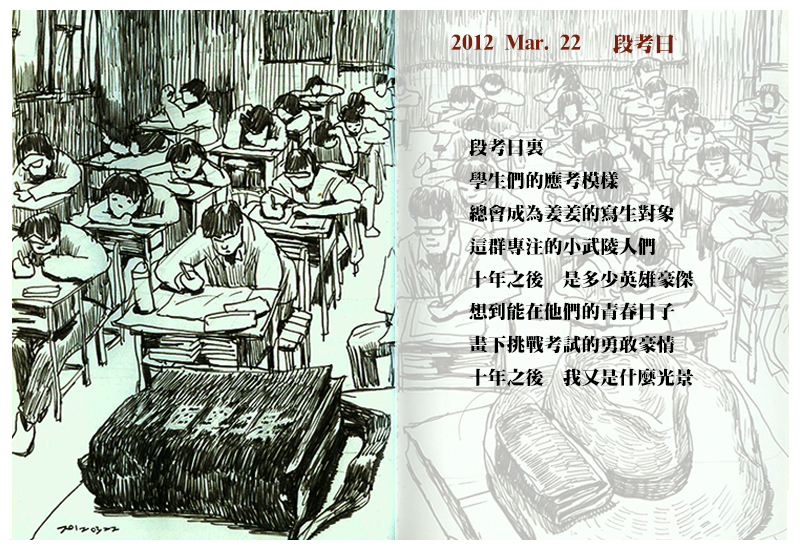 2012 Mar. 22 段考日
段考日裏
學生們的應考模樣
總會成為姜姜的寫生對象
這群專注的小武陵人們
十年之後 是多少英雄豪傑
想到能在他們的青春日子
畫下挑戰考試的勇敢豪情
十年之後 我又是什麼光景
2012 03 22